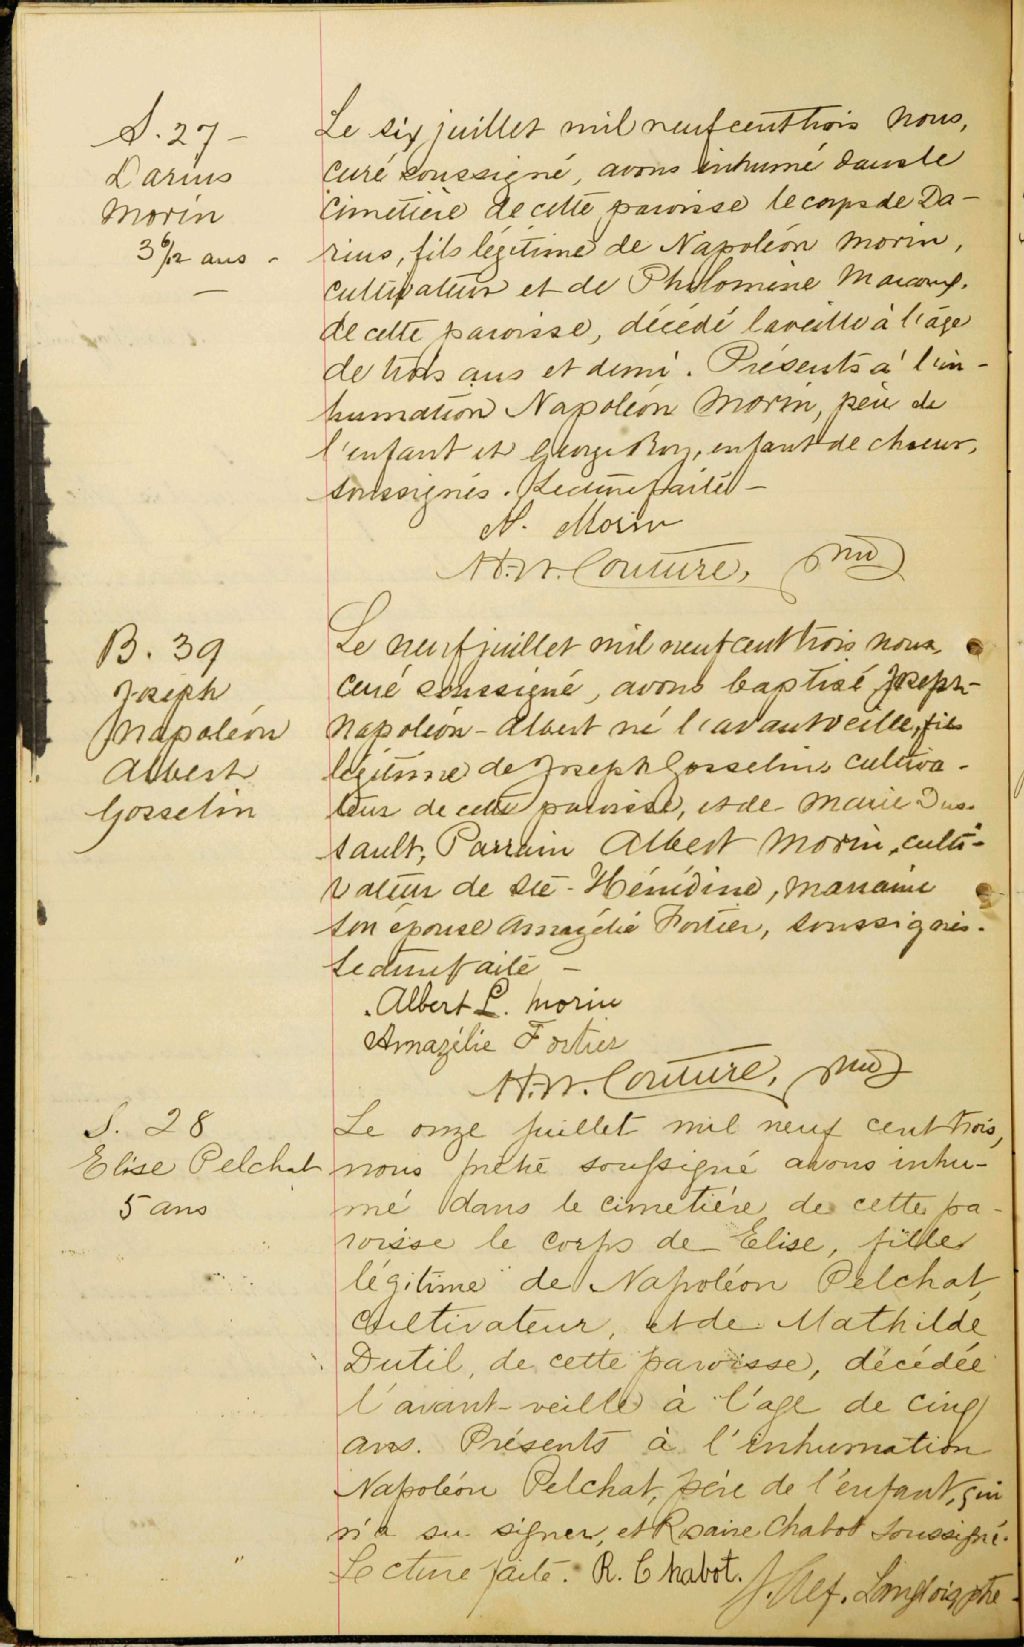 S. 27 -
Darius
Morin
3 6/12 ans -
Le six juillet mil neuf cent trois nous,
curé soussigné, avons inhumé dans le
cimetière de cette paroisse le corps de Da-
rius, fils légitime de Napoléon Morin,
cultivateur et de Philomène Marcoux.
de cette paroisse, décédé la veille à l'âge
de trois ans et demi. Présents à l'in-
humation Napoléon Morin, père de
l'enfant et George Roy, enfant de chœur,
soussignés. Lecture faite -
N. Morin
Couture, ptre
B. 39
Joseph
Napoléon
Albert
Gosselin
Le neuf juillet mil neuf cent trois nous,
curé soussigné, avons baptisé Joseph-
Napoléon-Albert né l'avant veille, fils
légitime de Joseph Gosselin, cultiva-
teur de cette paroisse, et de Marie Dus-
sault, Parrain Albert Morin, culti-
vateur de Ste-Hénédine, marraine
son épouse Amazélie Fortier, soussignés.
Lecture faite -
Albert L. Morin
Amazélie Fortier
Couture, ptre
S. 28
Elise Pelchat
5 ans
Le onze juillet mil neuf cent trois,
nous prêtre soussigné avons inhu-
mé dans le cimetière de cette pa-
roisse le corps de Elise, fille
légitime de Napoléon Pelchat,
cultivateur, et de Mathilde
Dutil, de cette paroisse, décédée
l'avant-veille à l'âge de cinq
ans. Présents à l'inhumation
Napoléon Pelchat, père de l'enfant, qui
n'a su signer, et Rosaire Chabot soussigné.
Lecture faite. R. Chabot.
J. Alf. Langlois ptre -